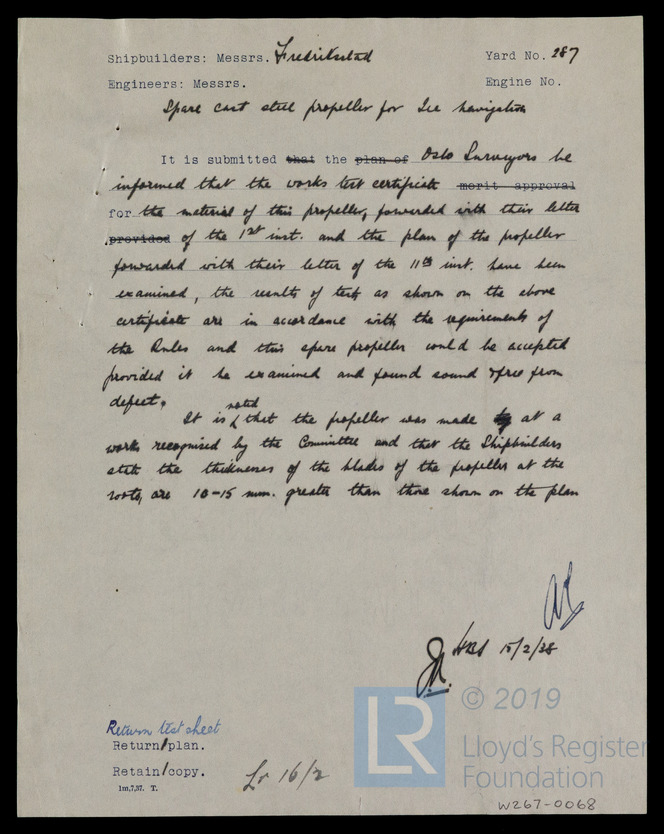 Shipbuilders: Messrs. Fredrikstad Yard No. 287
Engineers: Messrs. Engine No.
Spare cast steel propeller for Ice navigation
It is submitted that the plan of Oslo Surveyors be
informed that the works test certificate merit approval
for the material of this propeller, forwarded with their letter
provided of the 1st inst. and the plan of the propeller
forwarded with their letter of the 11th inst. have been
examined, the results of test as shown on the above
certificate are in accordance with the requirements of
the Rules and this spare propeller could be accepted
provided it be examined and found sound & free from
defect.
It is noted that the propeller was made by at a
works recognised by the Committee and that the Shipbuilders
state the thicknesses of the blades of the propeller at the
roots, are 10-15 mm. greater than those shown on the plan
15/2/38
Return test sheet
Return/plan.
Retain/copy.
1m,7,37. T.
Lr 16/2
LR
© 2019
Lloyd's Register
Foundation
W267-0068